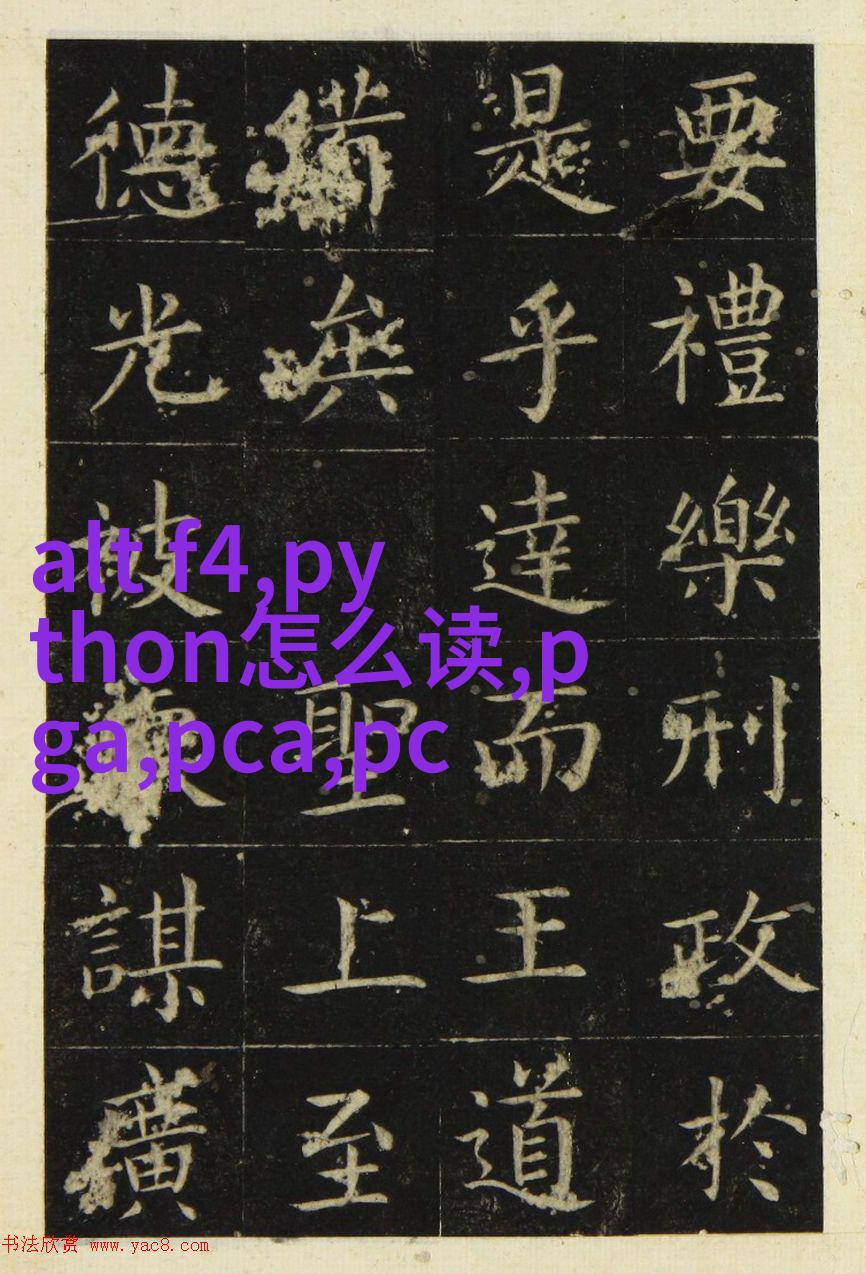 要禮樂刑政於
是乎達而王道
備矣聖上至
德光被謀廣
alt f4,py
thon怎么读,p
ga,pca,pc
书法欣赏 www.yac8.com